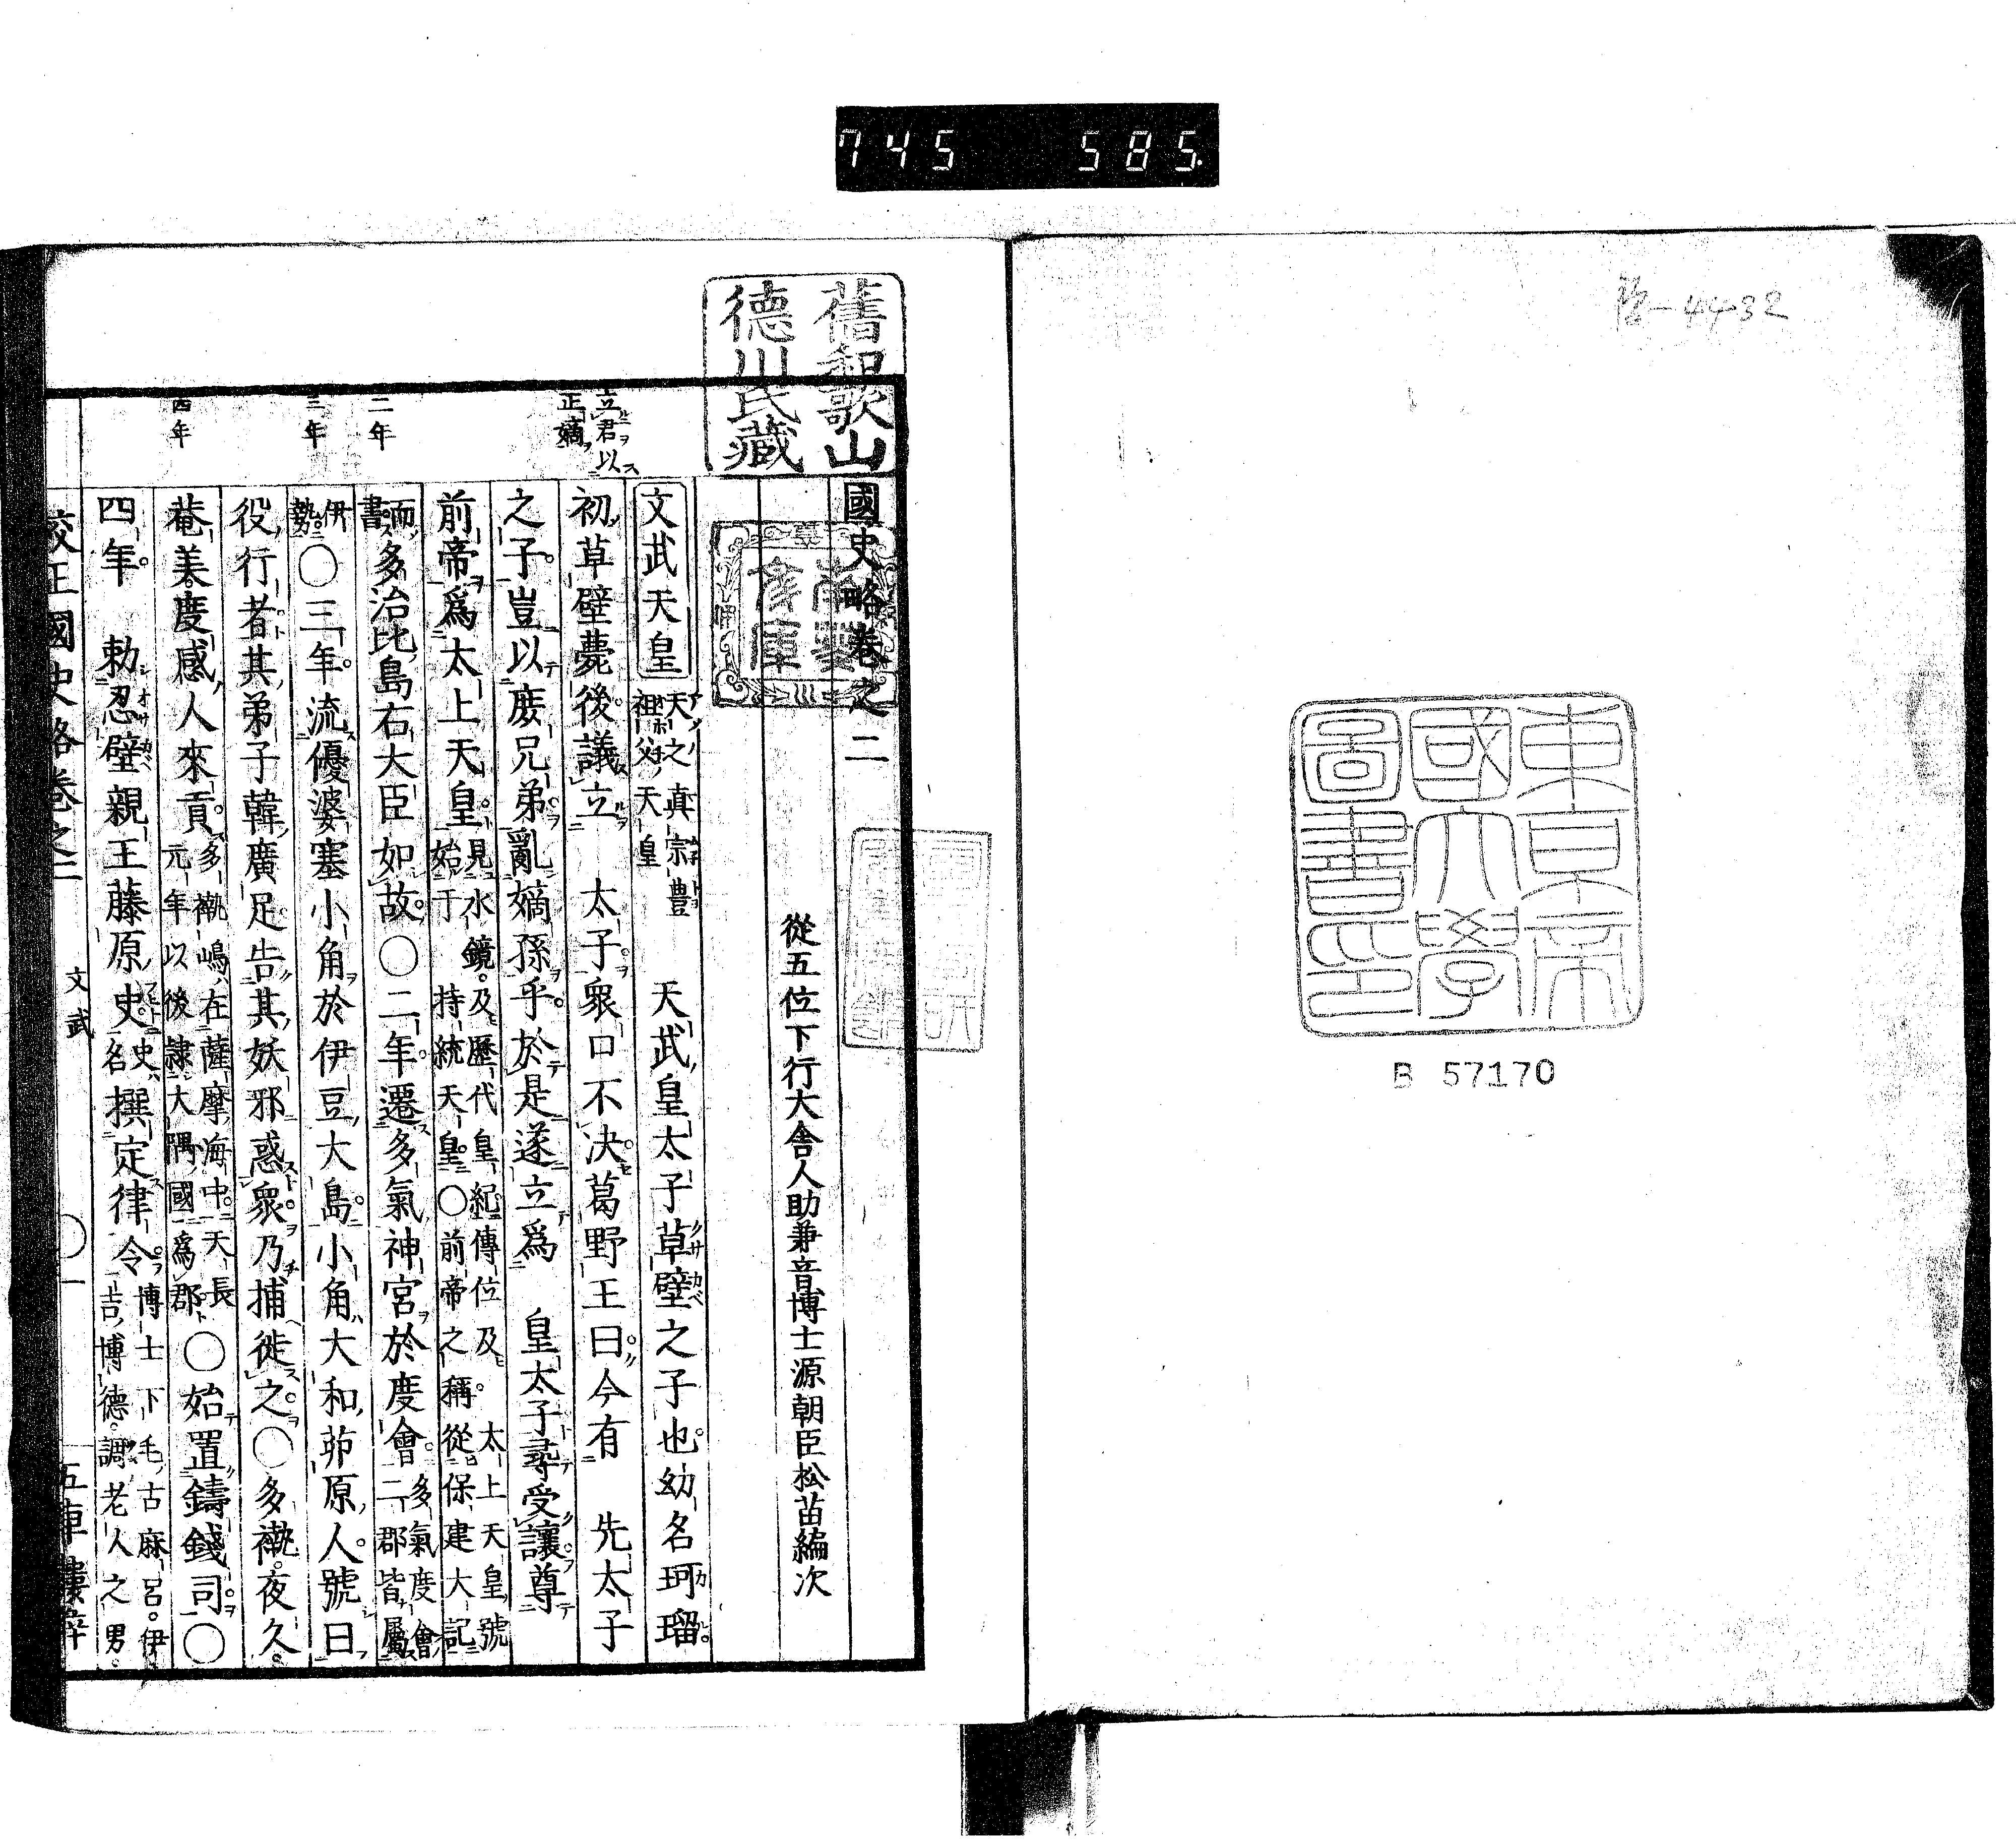 745 585
4432
東京帝
國大學
圖書印
B 57170
舊和歌山
德川氏藏
南葵
文庫
國史略卷之二
從五位下行大舍人助兼音博士源朝臣松苗編次
立君以
正嫡
文武天皇 天之真宗豐祖父天皇 天武皇太子草壁之子也幼名珂瑠
初草壁薨後議立 太子衆口不決葛野王曰今有 先太子
之子豈以庶兄弟亂嫡孫乎於是遂立爲 皇太子尋受讓尊
前帝爲太上天皇 見水鏡及歷代皇紀傳位及太上天皇號始于持統天皇○前帝之稱從保建大記
二年
而書多治比島右大臣如故○二年遷多氣神宮於度會 多氣度會二郡皆屬
三年
伊勢○三年流優婆塞小角於伊豆大島小角大和茆原人號曰
役行者其弟子韓廣足告其妖邪惑衆乃捕徙之○多褹夜久
四年
菴美度感人來貢 多褹嶋在薩摩海中天長元年以後隷大隅國爲郡○始置鑄錢司○
四年 勅忍壁親王藤原史 史名撰定律令 博士下毛古麻呂伊吉博德調老人之男
校正國史略卷之二 文武 ○一 五車樓梓